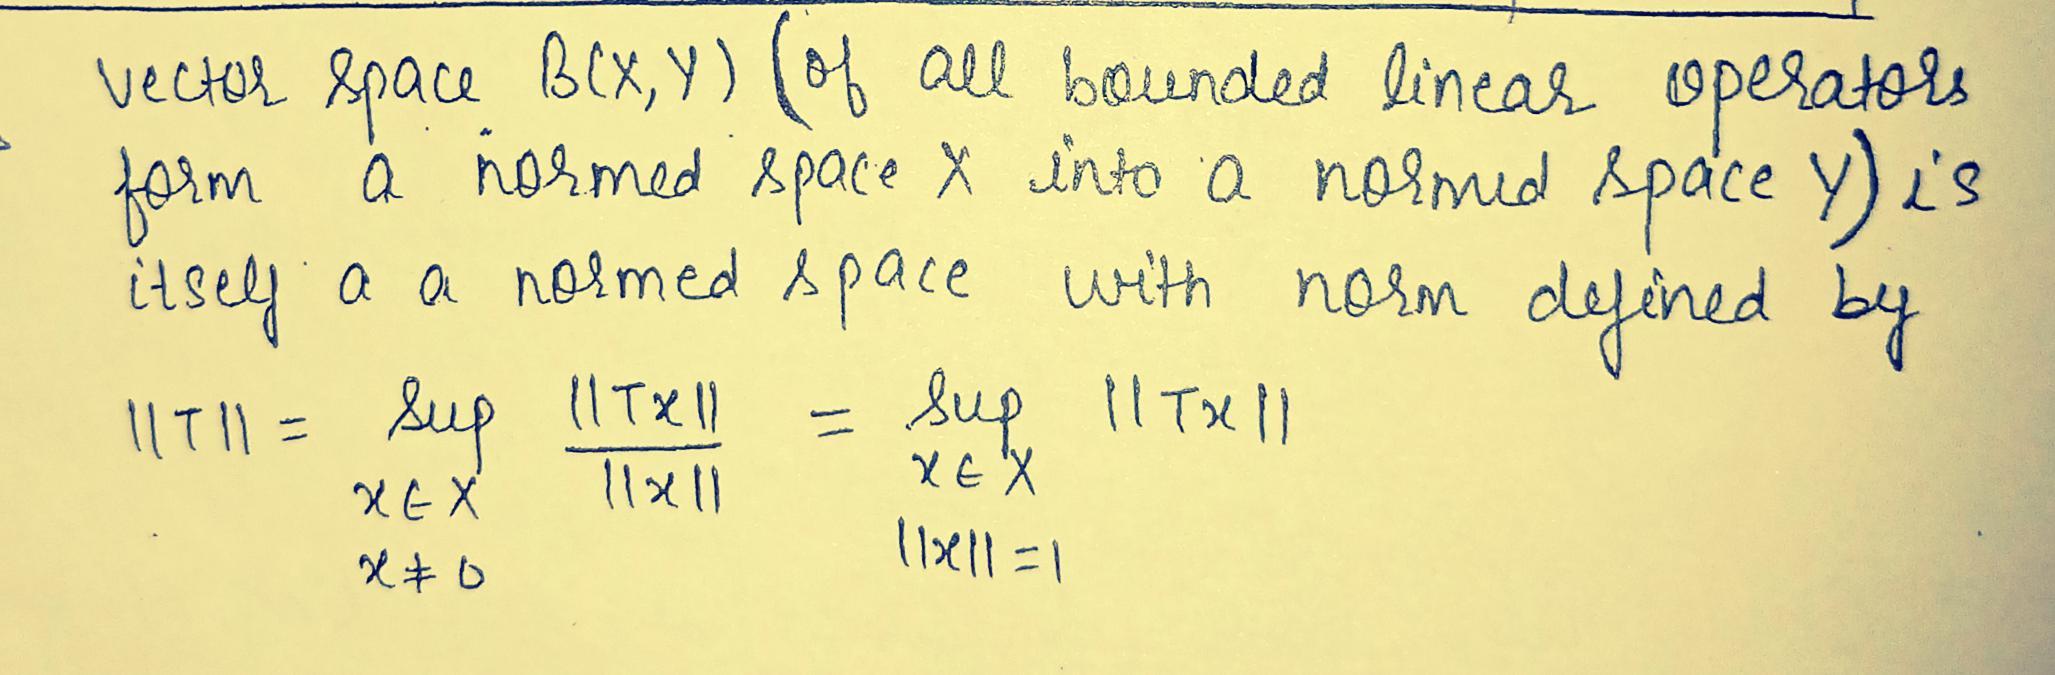 vector space B(X, Y) (of all bounded linear operators
form a normed space X into a normed space Y) is
itself a a normed space with norm defined by
||T|| = Sup ||Tx|| / ||x|| = Sup ||Tx||
x ∈ X x ∈ X
x ≠ 0 ||x|| = 1